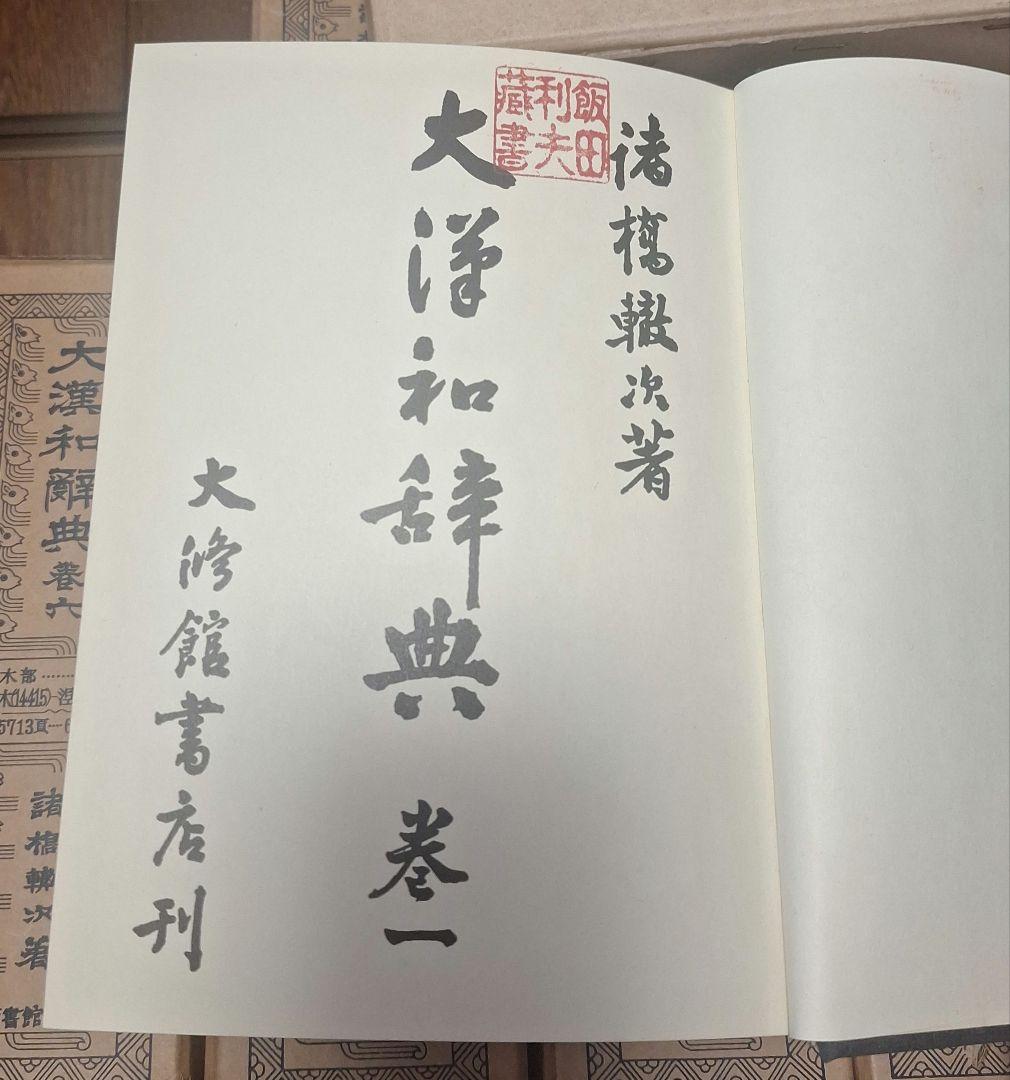 諸橋轍次著
大漢和辞典 巻一
大修館書店刊
飯田
利夫
蔵書
大漢和辭典 巻六
木部
木(14415)-涅
5713頁
諸橋轍次著
書館